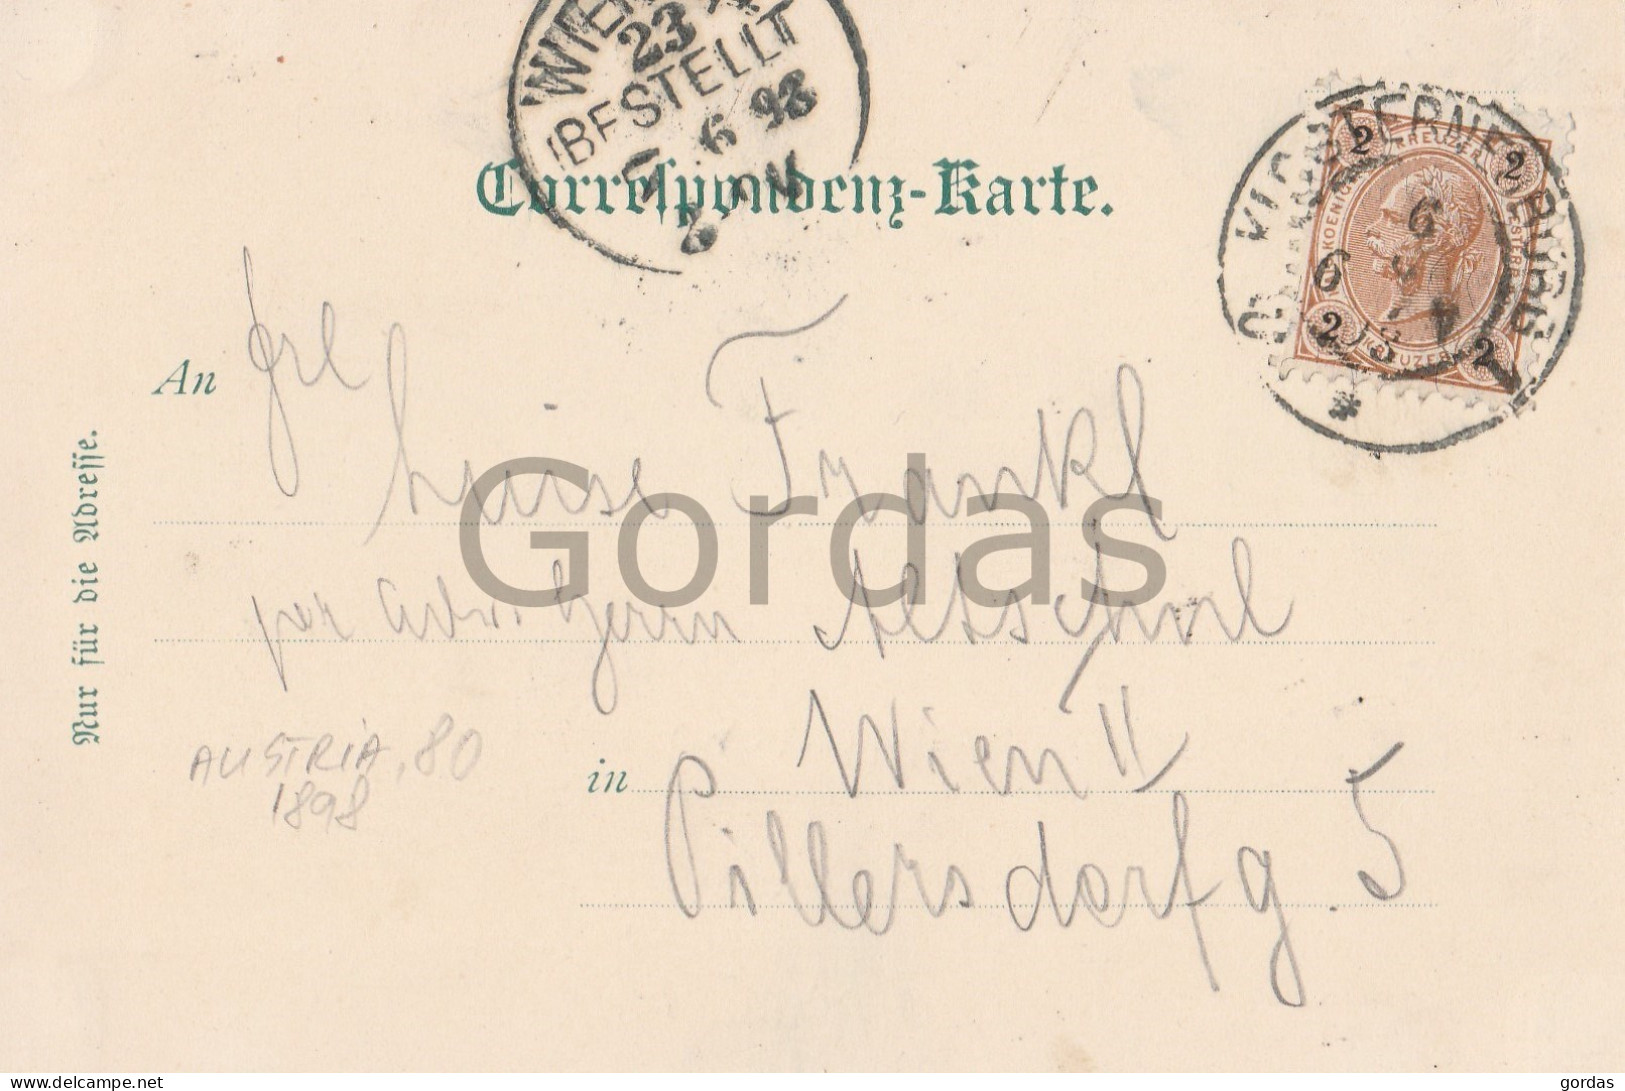 WIEN
23
BESTELLT
6 98
Correspondenz-Karte.
KLOSTERNEUBURG
2 KREUZER 2
6
6
2 KREUZER 2
An Frl
Luise Frankl
per Adr. Herrn Altschul
in Wien II
Pillersdorfg. 5
Nur für die Adresse.
AUSTRIA, 80
1898
Gordas
delcampe.net
gordas